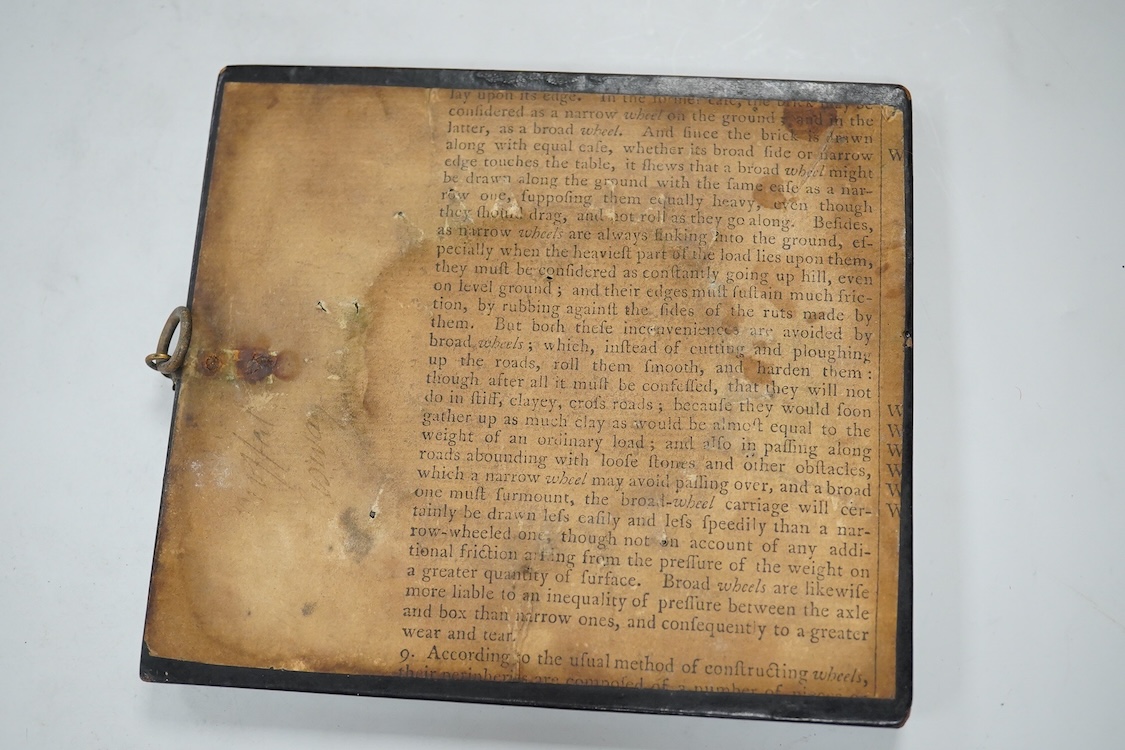 lay upon its edge. In the former case, the brick may be
conſidered as a narrow wheel on the ground; and in the
latter, as a broad wheel. And ſince the brick is drawn
along with equal eaſe, whether its broad ſide or narrow
edge touches the table, it ſhews that a broad wheel might
be drawn along the ground with the ſame eaſe as a nar-
row one, ſuppoſing them equally heavy, even though
they ſhould drag, and not roll as they go along. Beſides,
as narrow wheels are always ſinking into the ground, eſ-
pecially when the heavieſt part of the load lies upon them,
they muſt be conſidered as conſtantly going up hill, even
on level ground; and their edges muſt ſuſtain much fric-
tion, by rubbing againſt the ſides of the ruts made by
them. But both theſe inconveniences are avoided by
broad wheels; which, inſtead of cutting and ploughing
up the roads, roll them ſmooth, and harden them:
though after all it muſt be confeſſed, that they will not
do in ſtiff, clayey, croſs roads; becauſe they would ſoon
gather up as much clay as would be almoſt equal to the
weight of an ordinary load; and alſo in paſſing along
roads abounding with looſe ſtones and other obſtacles,
which a narrow wheel may avoid paſſing over, and a broad
one muſt ſurmount, the broad-wheel carriage will cer-
tainly be drawn leſs eaſily and leſs ſpeedily than a nar-
row-wheeled one, though not on account of any addi-
tional friction ariſing from the preſſure of the weight on
a greater quantity of ſurface. Broad wheels are likewiſe
more liable to an inequality of preſſure between the axle
and box than narrow ones, and conſequently to a greater
wear and tear.
9. According to the uſual method of conſtructing wheels,
their peripheries are compoſed of a number of
W
W
W
W
W
W